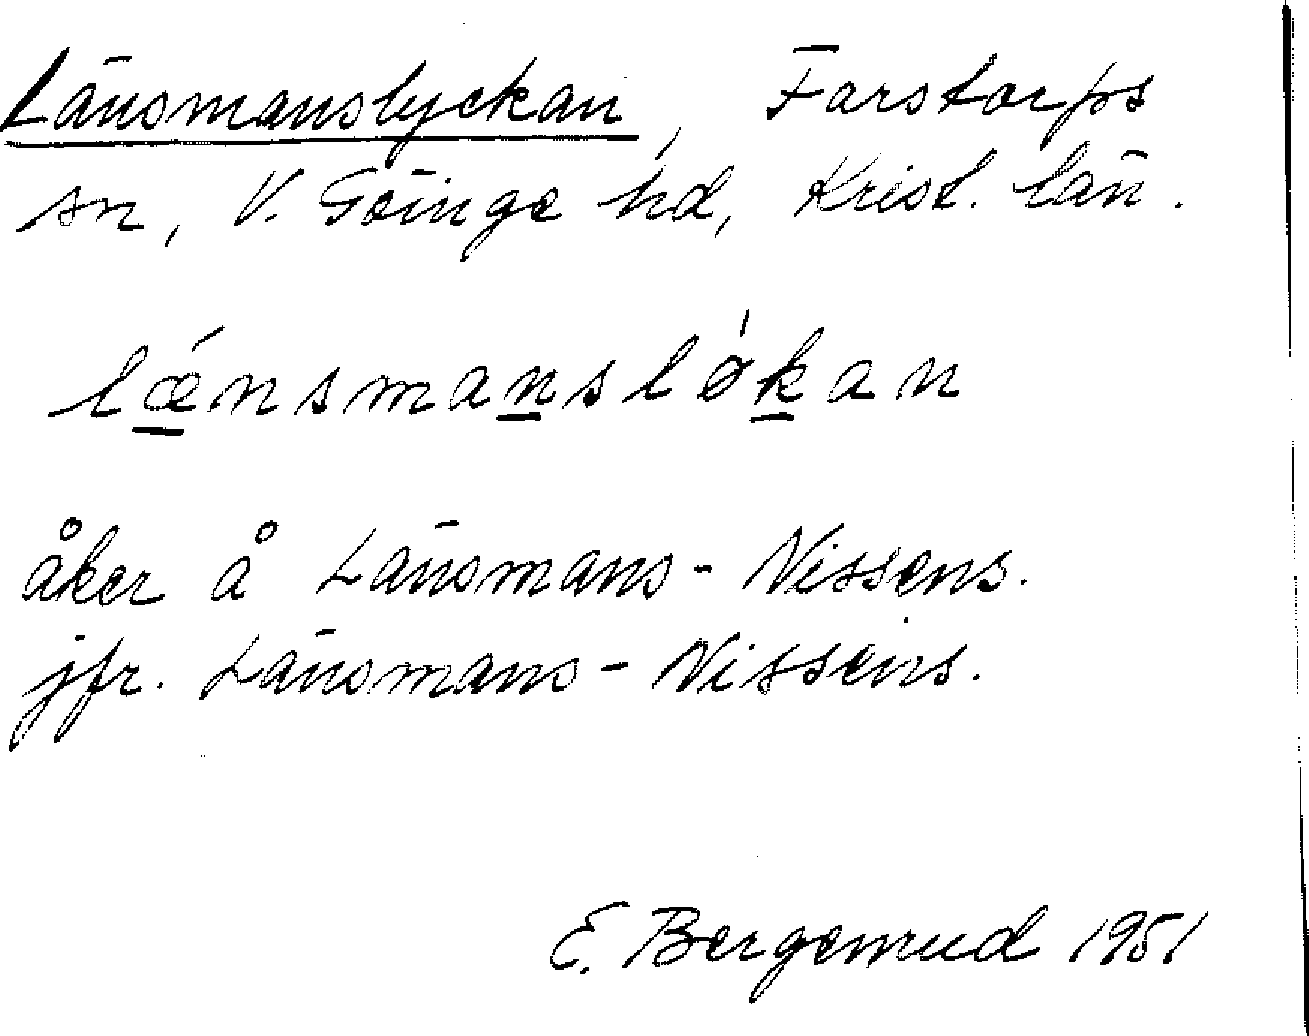 Länsmanslyckan, Farstorps
sn, V. Göinge hd, Krist. län.
lǽnsmanslǿkan
åker å Länsmans-Nissens.
jfr. Länsmans-Nissens.
E. Bergemrud 1951